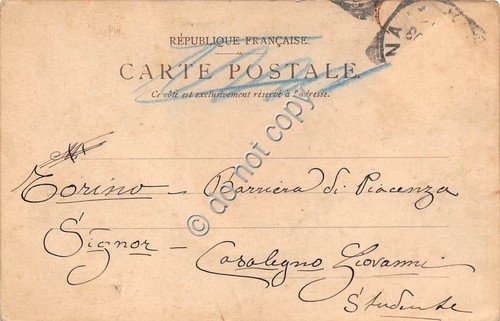 RÉPUBLIQUE FRANÇAISE.
CARTE POSTALE.
Ce côté est exclusivement réservé à l'adresse.
Torino - Barriera di Piacenza
Signor - Casalegno Giovanni
Studente
© do not copy